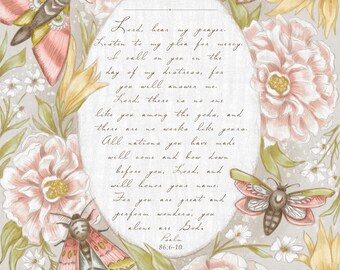 Lord, hear my prayer.
Listen to my plea for mercy.
I call on you in the
day of my distress, for
you will answer me.
Lord, there is no one
like you among the gods, and
there are no works like yours.
All nations you have made
will come and bow down
before you, Lord, and
will honor your name.
For you are great and
perform wonders; you
alone are God.
Psalm
86:6-10